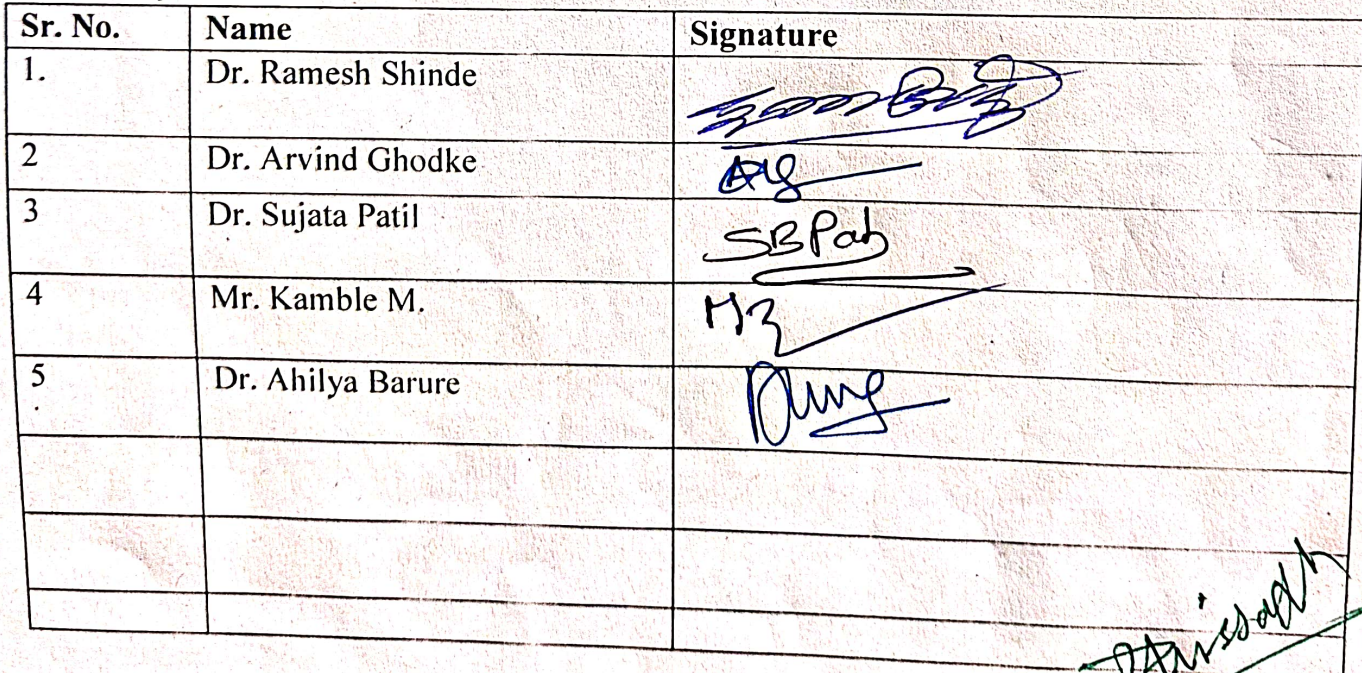 Sr. No. Name Signature
1. Dr. Ramesh Shinde
2 Dr. Arvind Ghodke
3 Dr. Sujata Patil SBPatil
4 Mr. Kamble M.
5 Dr. Ahilya Barure